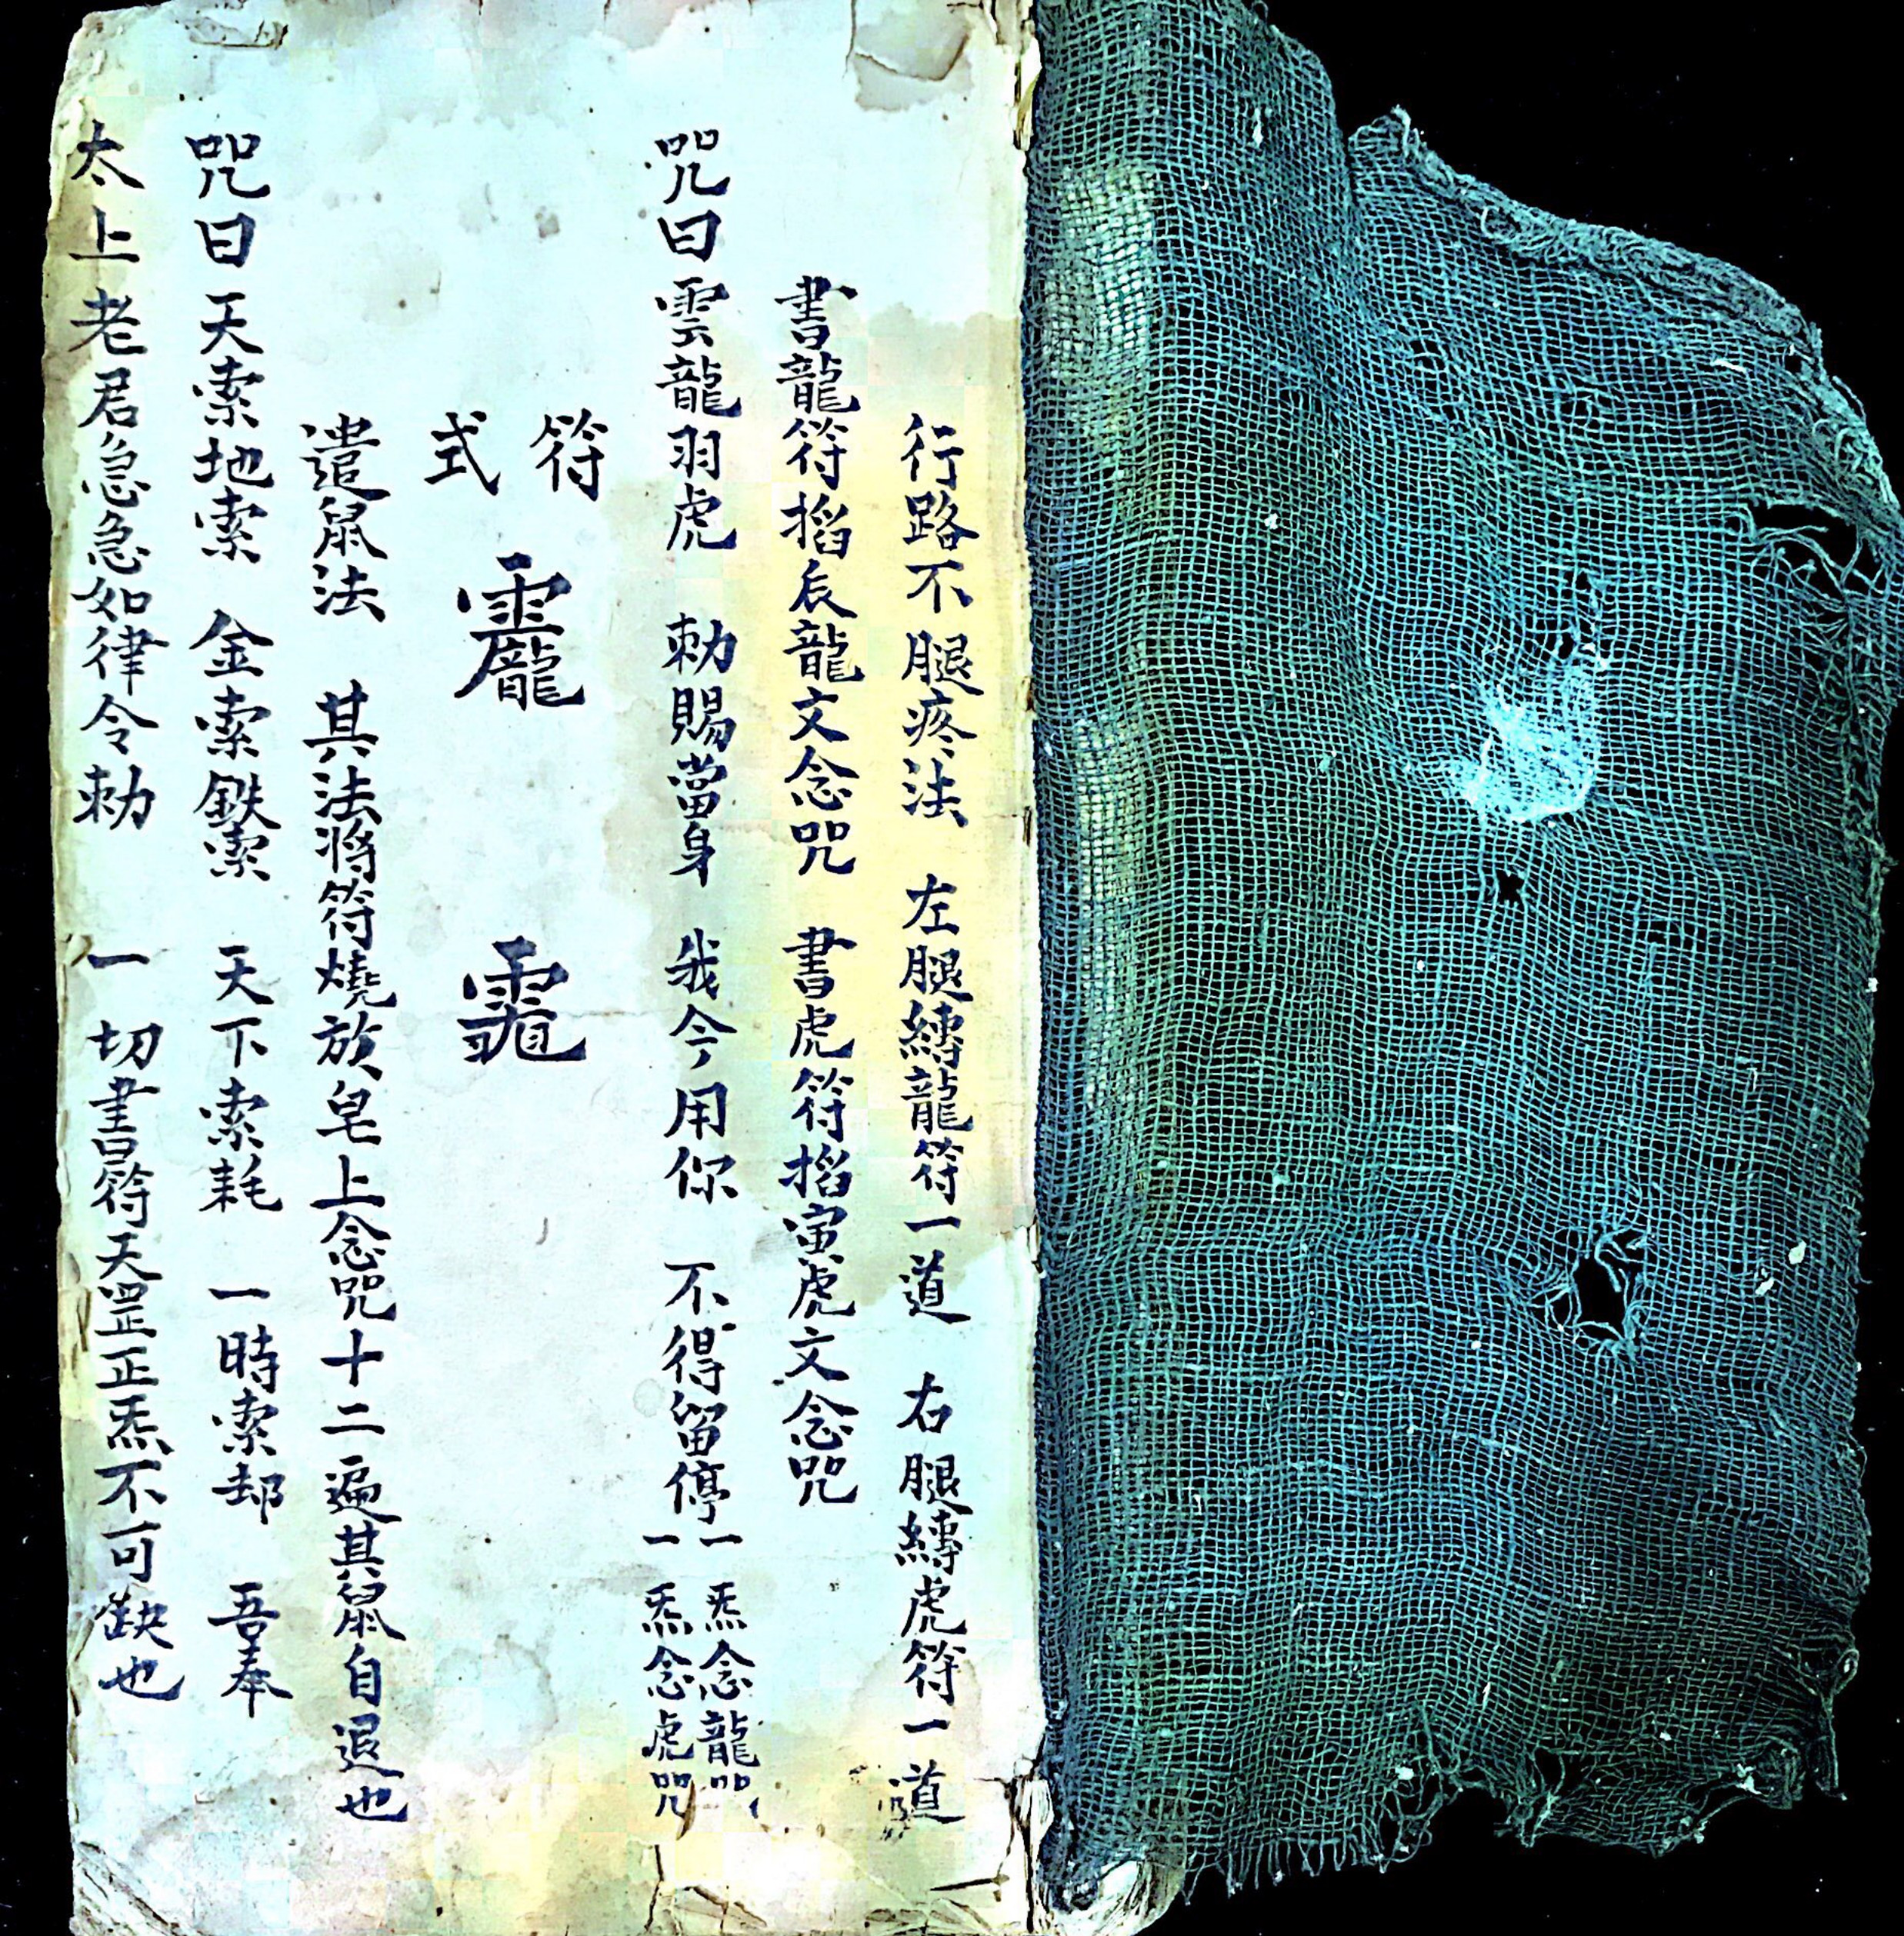 行路不腿疼法 左腿縛龍符一道 右腿縛虎符一道
書龍符搯辰龍文念咒 書虎符搯寅虎文念咒
咒曰雲龍羽虎 勅賜當身 我今用你 不得留停 一炁念龍咒 一炁念虎咒
符式
遣鼠法 其法將符燒放皂上念咒十二遍其鼠自退也
咒曰天索地索 金索鉄索 天下索耗 一時索却 吾奉
太上老君急急如律令勅 一切書符天罡正炁不可缺也